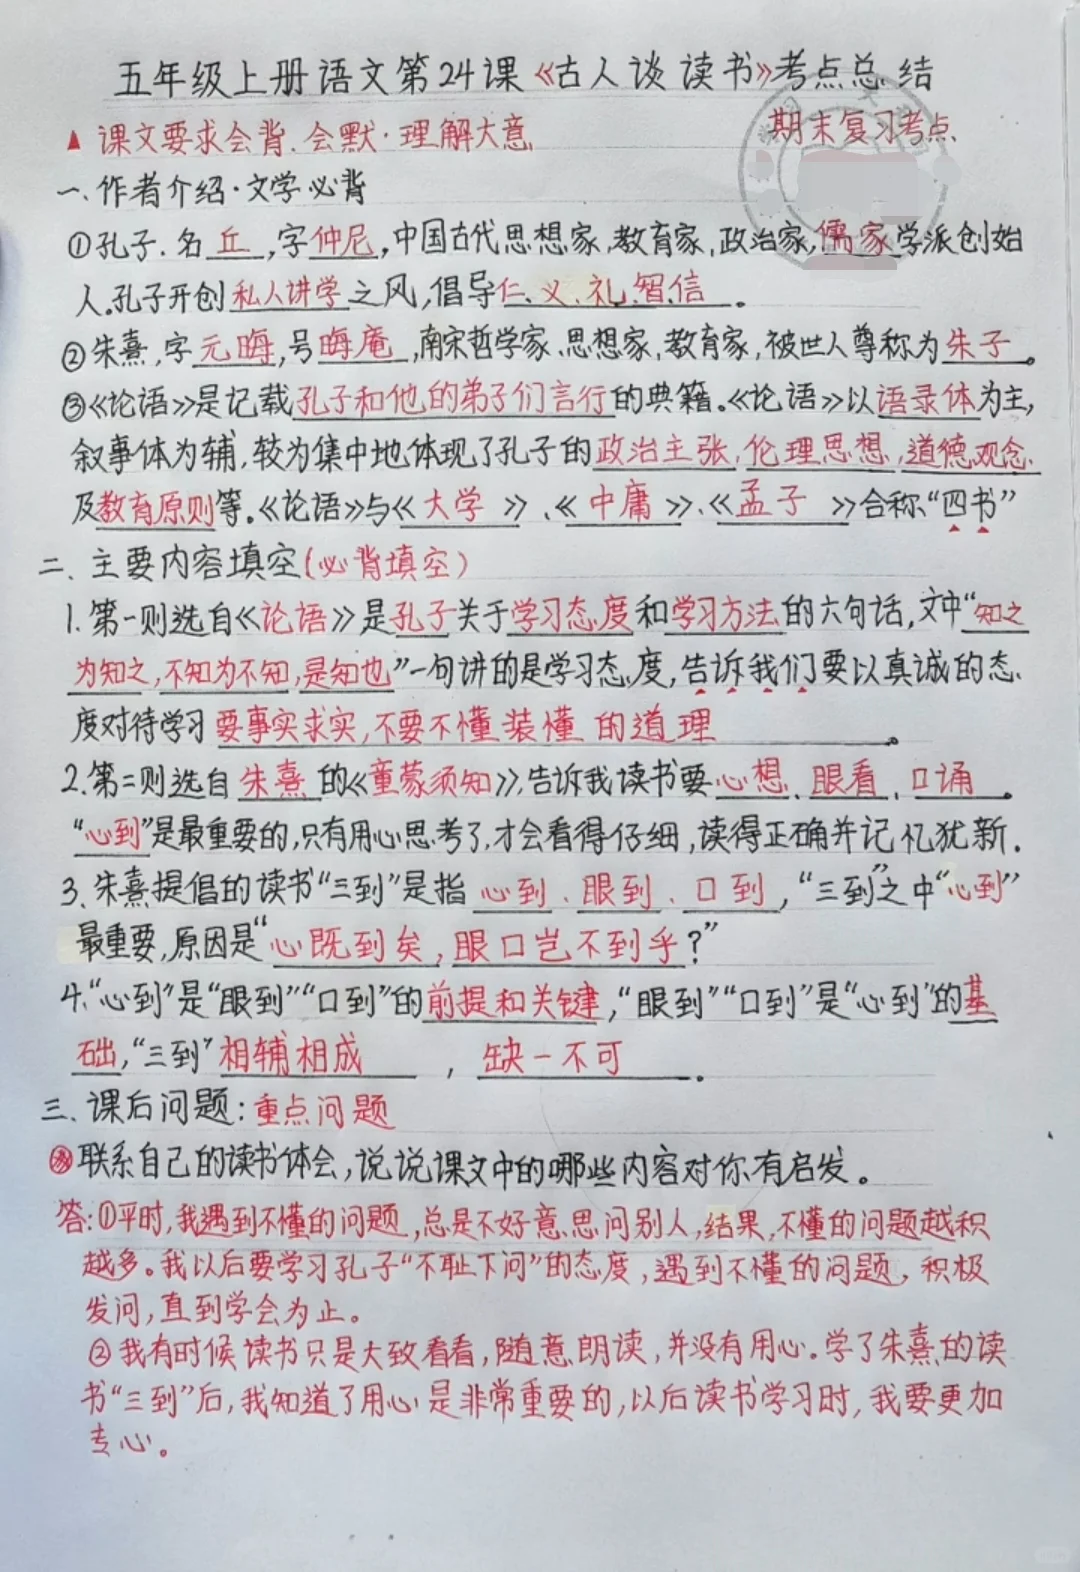 五年级上册语文第24课《古人谈读书》考点总结
▲ 课文要求会背.会默·理解大意
期末复习考点
一.作者介绍·文学必背
①孔子.名丘,字仲尼,中国古代思想家,教育家,政治家,儒家学派创始
人。孔子开创私人讲学之风,倡导仁、义、礼、智、信。
②朱熹,字元晦,号晦庵,南宋哲学家、思想家,教育家,被世人尊称为朱子。
③《论语》是记载孔子和他的弟子们言行的典籍。《论语》以语录体为主,
叙事体为辅,较为集中地体现了孔子的政治主张,伦理思想,道德观念
及教育原则等。《论语》与《大学》、《中庸》、《孟子》合称“四书”
二、主要内容填空(必背填空)
1.第一则选自《论语》是孔子关于学习态度和学习方法的六句话,文中“知之
为知之,不知为不知,是知也”一句讲的是学习态度,告诉我们要以真诚的态
度对待学习要事实求实,不要不懂装懂的道理。
2.第二则选自朱熹的《童蒙须知》,告诉我读书要心想、眼看、口诵。
“心到”是最重要的,只有用心思考了,才会看得仔细,读得正确并记忆犹新.
3.朱熹提倡的读书“三到”是指心到、眼到、口到,“三到”之中“心到”
最重要,原因是“心既到矣,眼口岂不到乎?”
4.“心到”是“眼到”“口到”的前提和关键,“眼到”“口到”是“心到”的基
础,“三到”相辅相成,缺一不可。
三.课后问题:重点问题
联系自己的读书体会,说说课文中的哪些内容对你有启发。
答:①平时,我遇到不懂的问题,总是不好意思问别人,结果,不懂的问题越积
越多。我以后要学习孔子“不耻下问”的态度,遇到不懂的问题,积极
发问,直到学会为止。
②我有时候读书只是大致看看,随意朗读,并没有用心。学了朱熹的读
书“三到”后,我知道了用心是非常重要的,以后读书学习时,我要更加
专心。